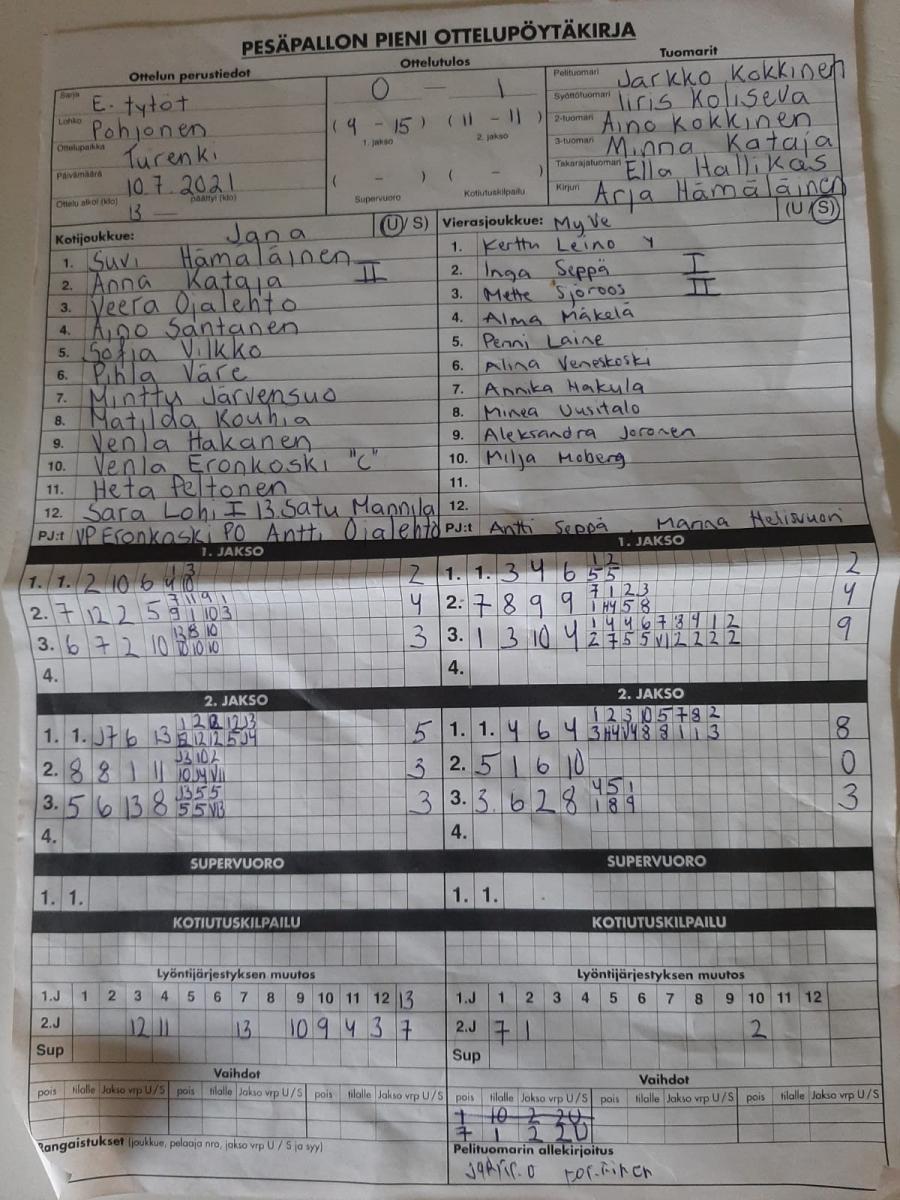 PESÄPALLON PIENI OTTELUPÖYTÄKIRJA
Ottelun perustiedot
Sarja E-tytöt
Lohko Pohjonen
Ottelupaikka Turenki
Päivämäärä 10.7.2021
Ottelu alkoi (klo) 13 — päättyi (klo)
Ottelutulos
0 — 1
(9 - 15) (11 - 11)
1. jakso 2. jakso
( - ) ( - )
Supervuoro Kotiutuskilpailu
Tuomarit
Pelituomari Jarkko Kokkinen
Syöttötuomari Iiris Koliseva
2-tuomari Aino Kokkinen
3-tuomari Minna Kataja
Takarajatuomari Ella Hallikas
Kirjuri Arja Hämäläinen
Kotijoukkue: Jana (U/S)
1. Suvi Hämäläinen
2. Anna Kataja II
3. Veera Ojalehto
4. Aino Santanen
5. Sofia Vilkko
6. Pihla Väre
7. Minttu Järvensuo
8. Matilda Kouhia
9. Venla Hakanen
10. Venla Eronkoski "C"
11. Heta Peltonen
12. Sara Lohi I 13. Satu Mannila
PJ:t VP Eronkoski PO Antti Ojalehto
Vierasjoukkue: MyVe (U/S)
1. Kerttu Leino Y
2. Inga Seppä I
3. Mette Sjöroos II
4. Alma Mäkelä
5. Penni Laine
6. Alina Veneskoski
7. Annika Hakula
8. Minea Uusitalo
9. Aleksandra Joronen
10. Milja Moberg
11.
12.
PJ:t Antti Seppä, Marina Helisvuori
1. JAKSO
1. 1. 2 10 6 4 2
2. 7 12 2 5 4
3. 6 7 2 10 3
4.
1. JAKSO
1. 1. 3 4 6 1 2 2
5 5
2. 7 8 9 9 7 1 2 3 4
1 H4 5 8
3. 1 3 10 4 1 4 4 6 7 8 9 1 2 9
2 7 5 5 VI 2 2 2 2
4.
2. JAKSO
1. 1. J7 6 13 5
2. 8 8 1 11 J3 10 2 3
10 J4 VII
3. 5 6 13 8 J3 5 5 3
5 5 V13
4.
2. JAKSO
1. 1. 4 6 4 1 2 3 10 5 7 8 2 8
3 H4 V4 8 8 1 1 3
2. 5 1 6 10 0
3. 3 6 2 8 4 5 1 3
1 8 9
4.
SUPERVUORO
1. 1.
SUPERVUORO
1. 1.
KOTIUTUSKILPAILU
KOTIUTUSKILPAILU
Lyöntijärjestyksen muutos
1.J 1 2 3 4 5 6 7 8 9 10 11 12 13
2.J 12 11 13 10 9 4 3 7
Sup
Lyöntijärjestyksen muutos
1.J 1 2 3 4 5 6 7 8 9 10 11 12
2.J 7 1 2
Sup
Vaihdot
pois tilalle Jakso vrp U/S pois tilalle Jakso vrp U/S pois tilalle Jakso vrp U/S
Vaihdot
pois tilalle Jakso vrp U/S pois tilalle Jakso vrp U/S pois tilalle Jakso vrp U/S
1 10 2 2U
7 1 2 2U
Rangaistukset (joukkue, pelaaja nro, jakso vrp U / S ja syy)
Pelituomarin allekirjoitus